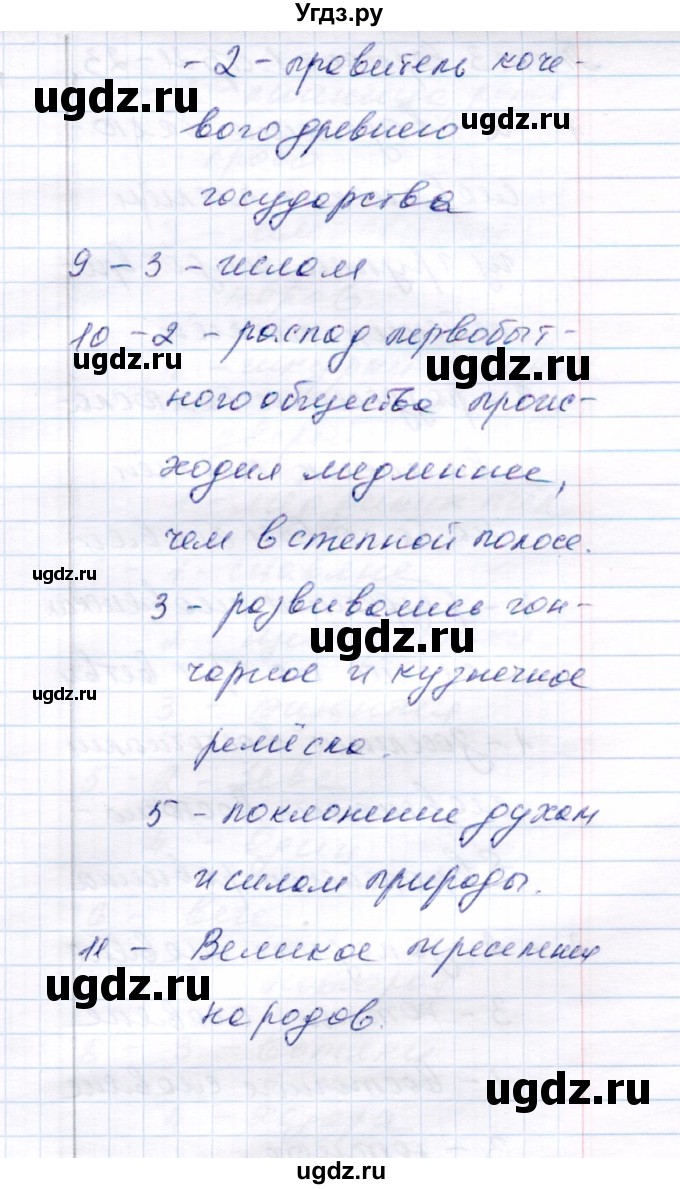 Угдз.ру
- 2 - правитель коче-
ugdz.ru
ugdz.ru
вого древнего
государства
9 - 3 - гислам
10 - 2 - распад первобыт-
ugdz.ru
ugdz.ru
ного общества проис-
ходил медленнее,
чем в степной полосе.
ugdz.ru
3 - развивались гон-
ugdz.ru
чарное и кузнечное
ugdz.ru
ремёсла.
5 - поклонение духам
и силам природы.
11 - Великое переселение
ugdz.ru
народов.
ugdz.ru
ugdz.ru